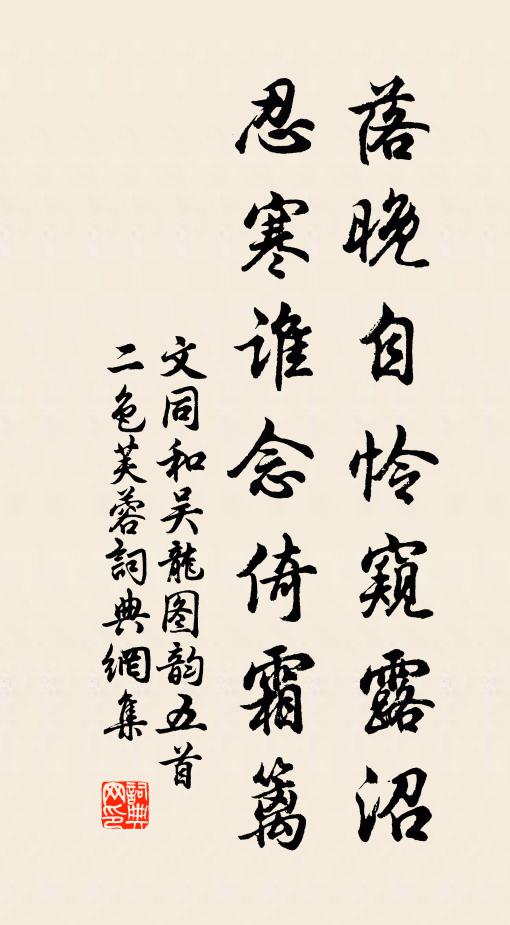 落晚自怜窥露沼
忍寒谁念倚霜篱
文同和吴龍图韵五首
二色芙蓉詞典網集
詞典网印